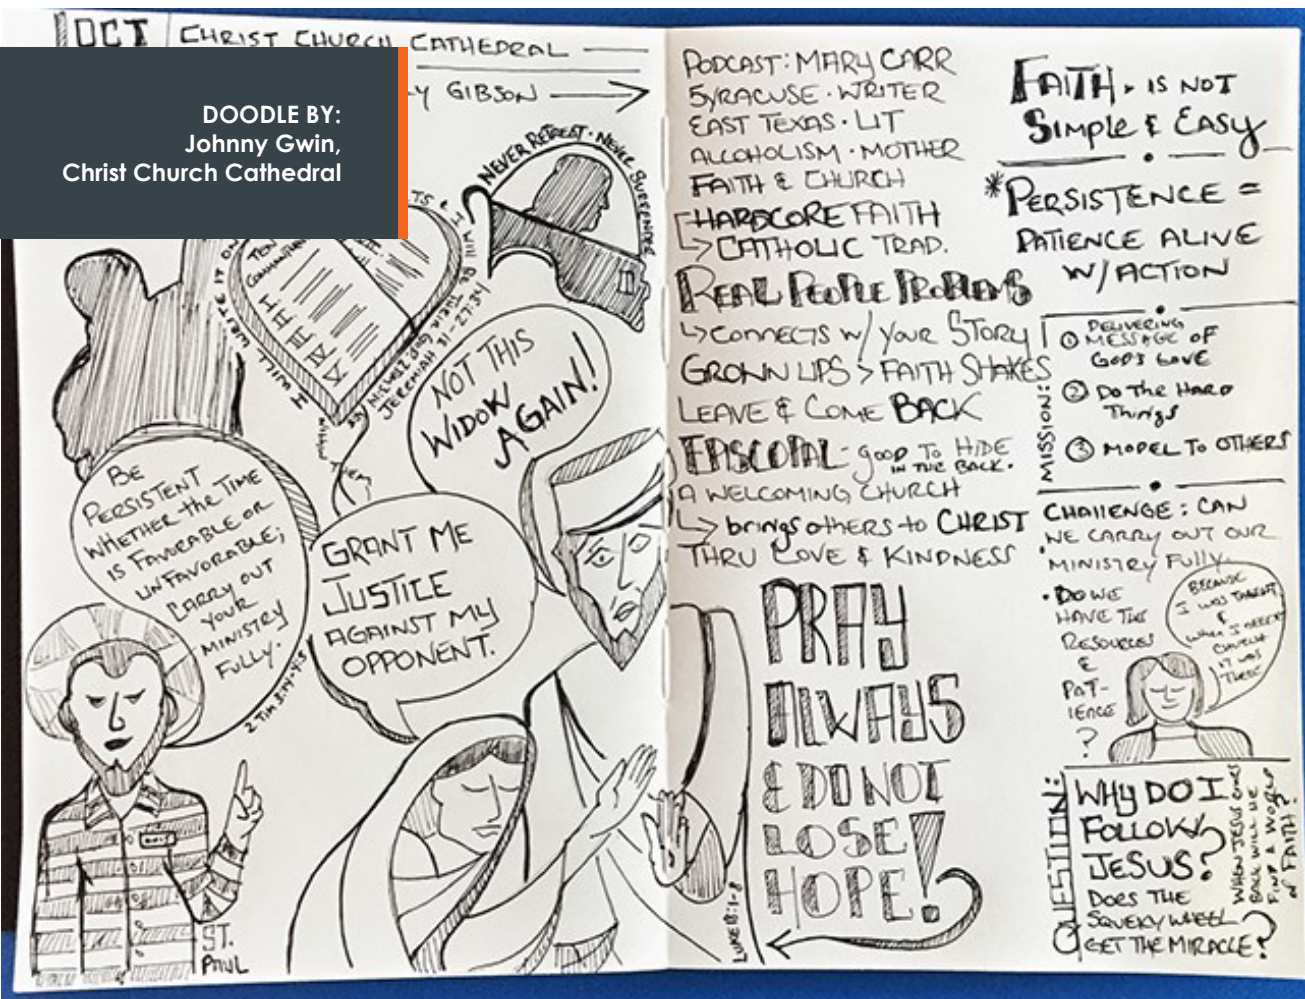 OCT
CHRIST CHURCH CATHEDRAL
GIBSON
DOODLE BY:
Johnny Gwin,
Christ Church Cathedral
NEVER RETREAT · NEVER SURRENDER
TEN
I WILL WRITE IT ON
WITHIN THEM
I WILL BE THEIR GOD
JEREMIAH 31-27:34
NOT THIS
WIDOW
AGAIN!
BE
PERSISTENT
WHETHER THE TIME
IS FAVORABLE OR
UNFAVORABLE;
CARRY OUT
YOUR
MINISTRY
FULLY.
2 TIM 3:14-4:5
GRANT ME
JUSTICE
AGAINST MY
OPPONENT.
ST.
PAUL
PODCAST: MARY CARR
SYRACUSE · WRITER
EAST TEXAS · LIT
ALCOHOLISM · MOTHER
FAITH & CHURCH
HARDCORE FAITH
CATHOLIC TRAD.
REAL PEOPLE PROBLEMS
CONNECTS W/ YOUR STORY
GROWN UPS > FAITH SHAKES
LEAVE & COME BACK
EPISCOPAL - GOOD TO HIDE
IN THE BACK.
A WELCOMING CHURCH
brings others to CHRIST
THRU LOVE & KINDNESS
PRAY
ALWAYS
& DO NOT
LOSE
HOPE!
LUKE 18:1-8
FAITH · IS NOT
SIMPLE & EASY
*PERSISTENCE =
PATIENCE ALIVE
W/ ACTION
MISSION:
① DELIVERING
MESSAGE OF
GOD'S LOVE
② DO THE HARD
THINGS
③ MODEL TO OTHERS
CHALLENGE: CAN
WE CARRY OUT OUR
MINISTRY FULLY.
· DO WE
HAVE THE
RESOURCES
&
PAT-
IENCE
?
BECAUSE
I WAS TAUGHT
&
WHEN I NEEDED
CHURCH
IT WAS
THERE
QUESTION:
WHY DO I
FOLLOW
JESUS?
DOES THE
SQUEKY WHEEL
GET THE MIRACLE?
WHEN JESUS COMES
BACK WILL HE
FIND A WORLD
OF FAITH?